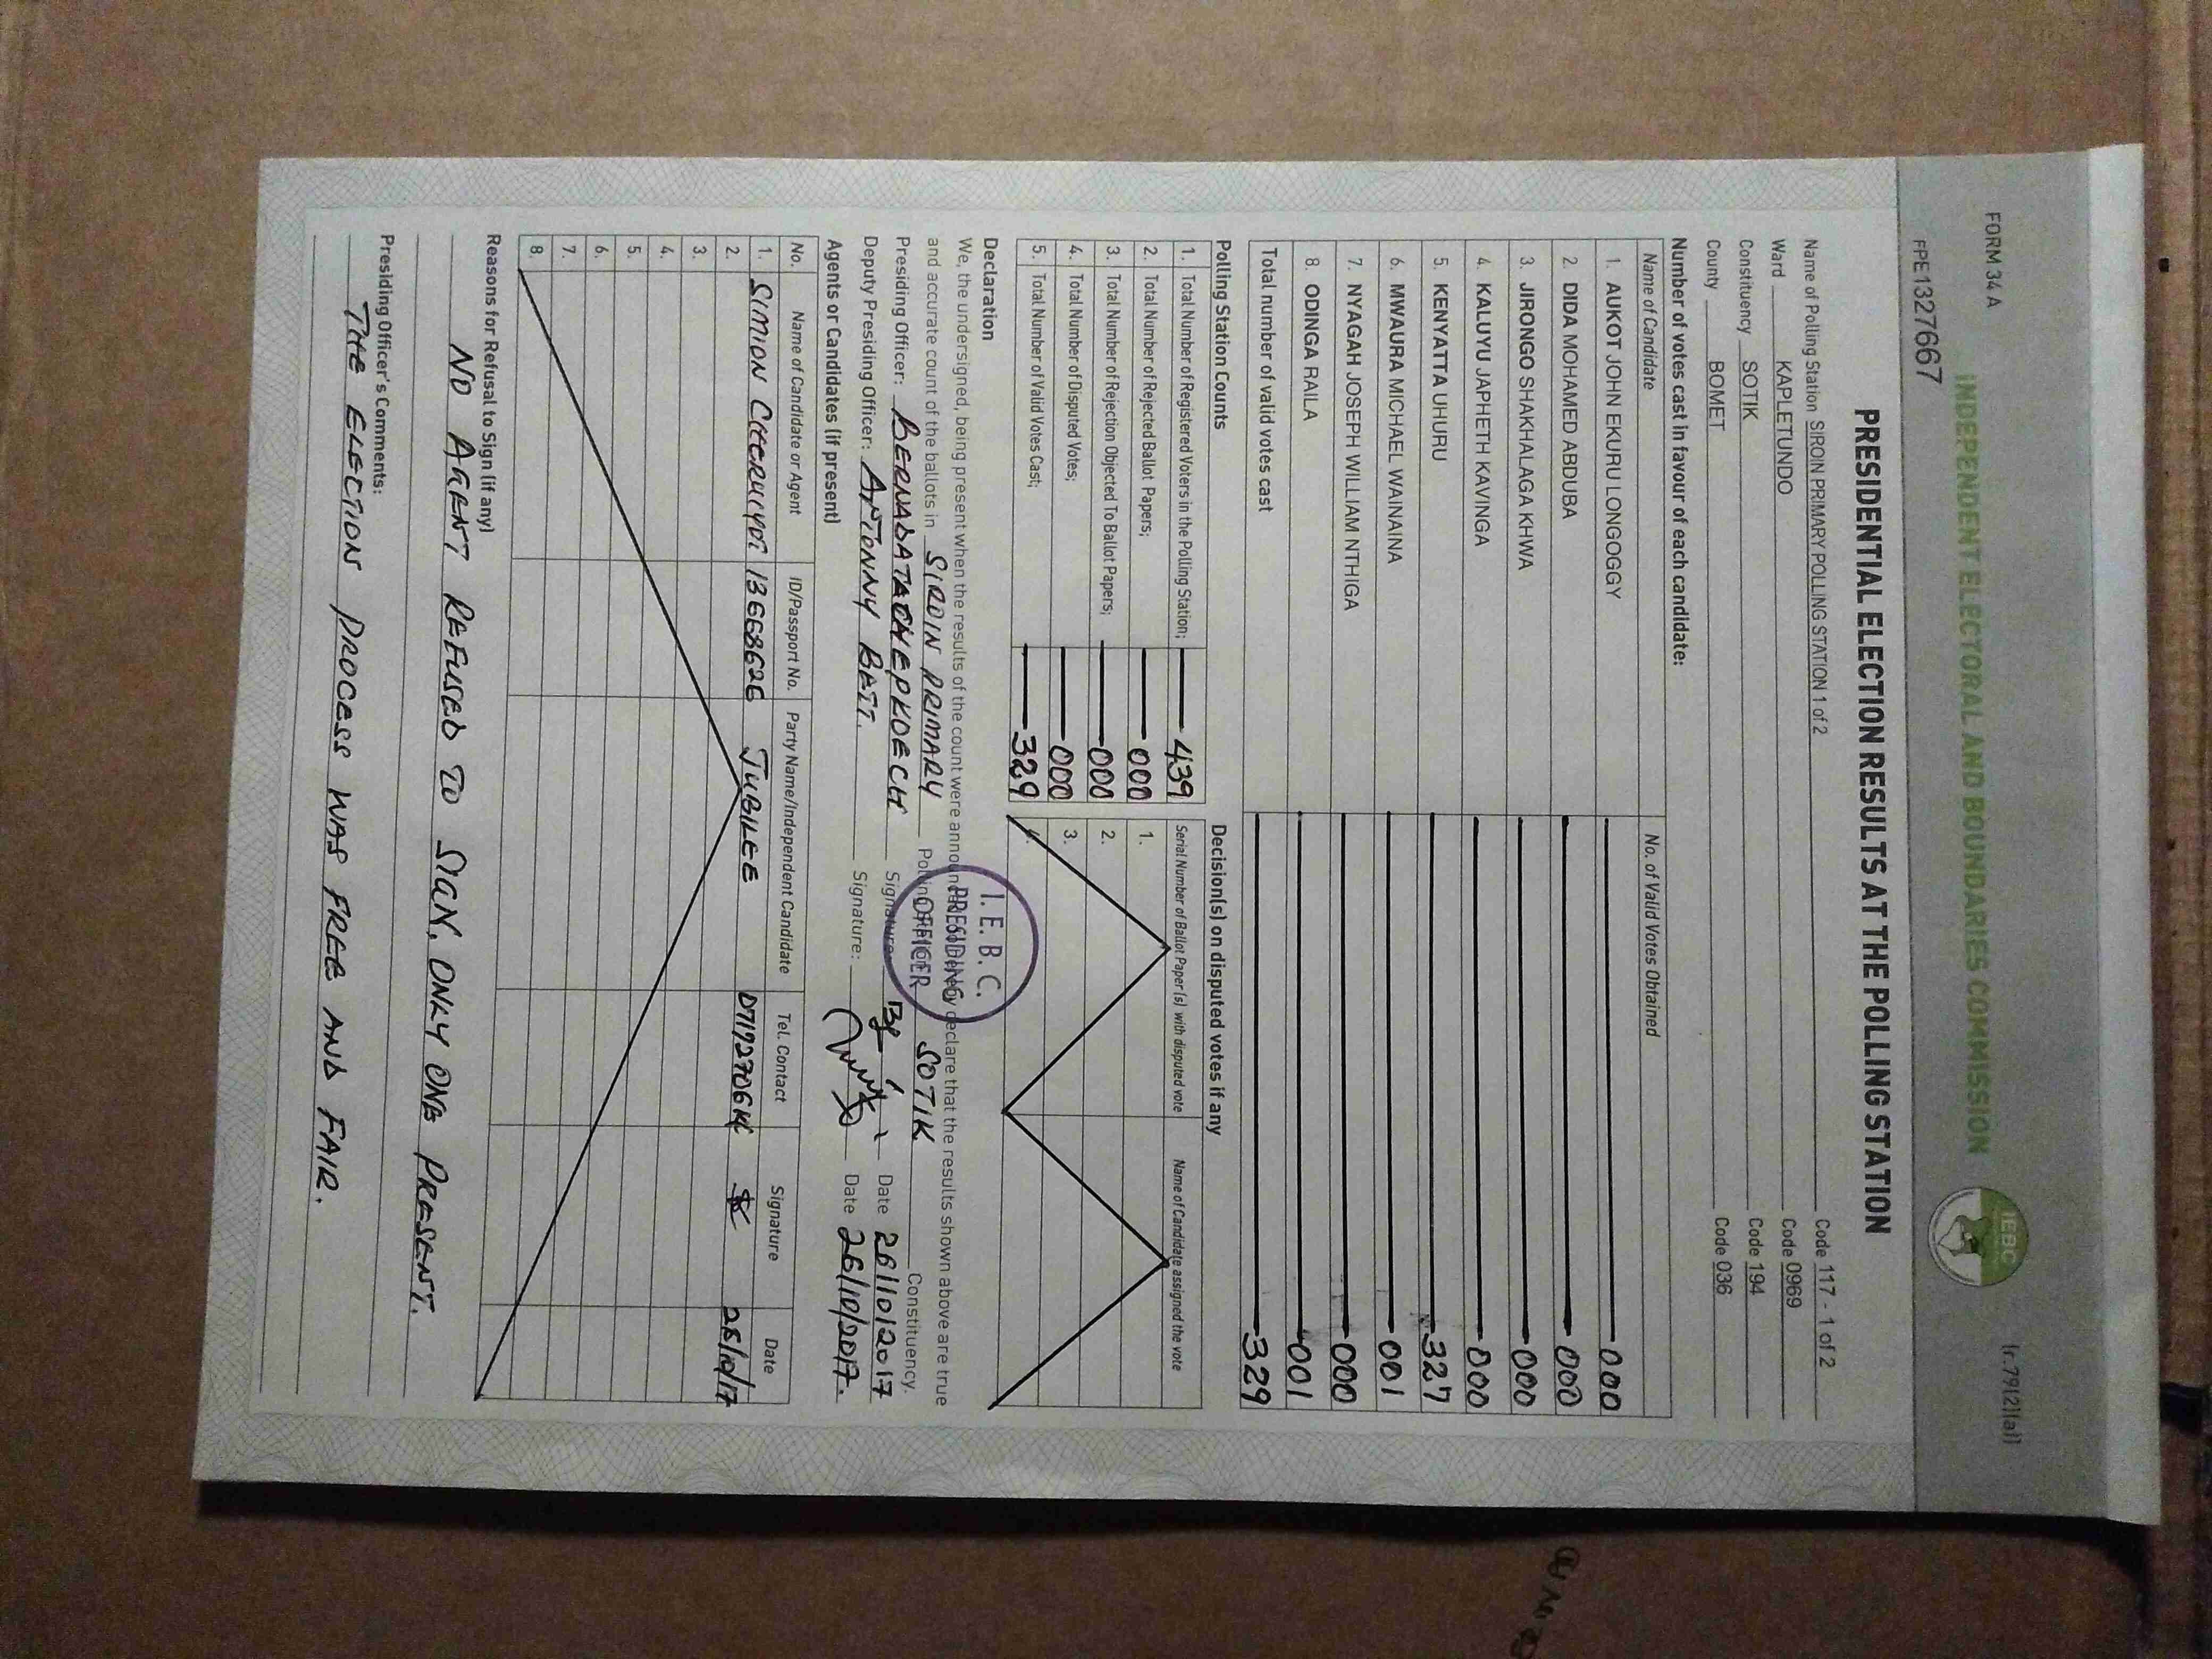 FORM 34 A
(r.79(2)(a))
FPE132667
INDEPENDENT ELECTORAL AND BOUNDARIES COMMISSION
IEBC
PRESIDENTIAL ELECTION RESULTS AT THE POLLING STATION
Name of Polling Station SIROIN PRIMARY POLLING STATION 1 of 2 Code 117 - 1 of 2
Ward KAPLETUNDO Code 0969
Constituency SOTIK Code 194
County BOMET Code 036
Number of votes cast in favour of each candidate:
Name of Candidate No. of Valid Votes Obtained
1. AUKOT JOHN EKURU LONGOGGY 000
2. DIDA MOHAMED ABDUBA 000
3. JIRONGO SHAKHALAGA KHWA 000
4. KALUYU JAPHETH KAVINGA 000
5. KENYATTA UHURU 327
6. MWAURA MICHAEL WAINAINA 001
7. NYAGAH JOSEPH WILLIAM NTHIGA 000
8. ODINGA RAILA 001
Total number of valid votes cast 329
Polling Station Counts
1. Total Number of Registered Voters in the Polling Station; 439
2. Total Number of Rejected Ballot Papers; 000
3. Total Number of Rejection Objected To Ballot Papers; 000
4. Total Number of Disputed Votes; 000
5. Total Number of Valid Votes Cast; 329
Decision(s) on disputed votes if any
Serial Number of Ballot Paper(s) with disputed vote Name of Candidate assigned the vote
1.
2.
3.
Declaration
We, the undersigned, being present when the results of the count were announced, do hereby declare that the results shown above are true
and accurate count of the ballots in SIROIN PRIMARY Polling Station SOTIK Constituency.
I. E. B. C.
PRESIDING
OFFICER
Presiding Officer: BERNADATA CHEPKOECH Signature: Date 26/10/2017
Deputy Presiding Officer: ANTONNY BETT. Signature: Date 26/10/2017.
Agents or Candidates (if present)
No. Name of Candidate or Agent ID/Passport No. Party Name/Independent Candidate Tel. Contact Signature Date
1. SIMION CHERUIYOT 13668626 JUBILEE 26/10/17
2.
3.
4.
5.
6.
7.
8.
Reasons for Refusal to Sign (if any)
NO AGENT REFUSED TO SIGN. ONLY ONE PRESENT.
Presiding Officer's Comments:
THE ELECTION PROCESS WAS FREE AND FAIR.